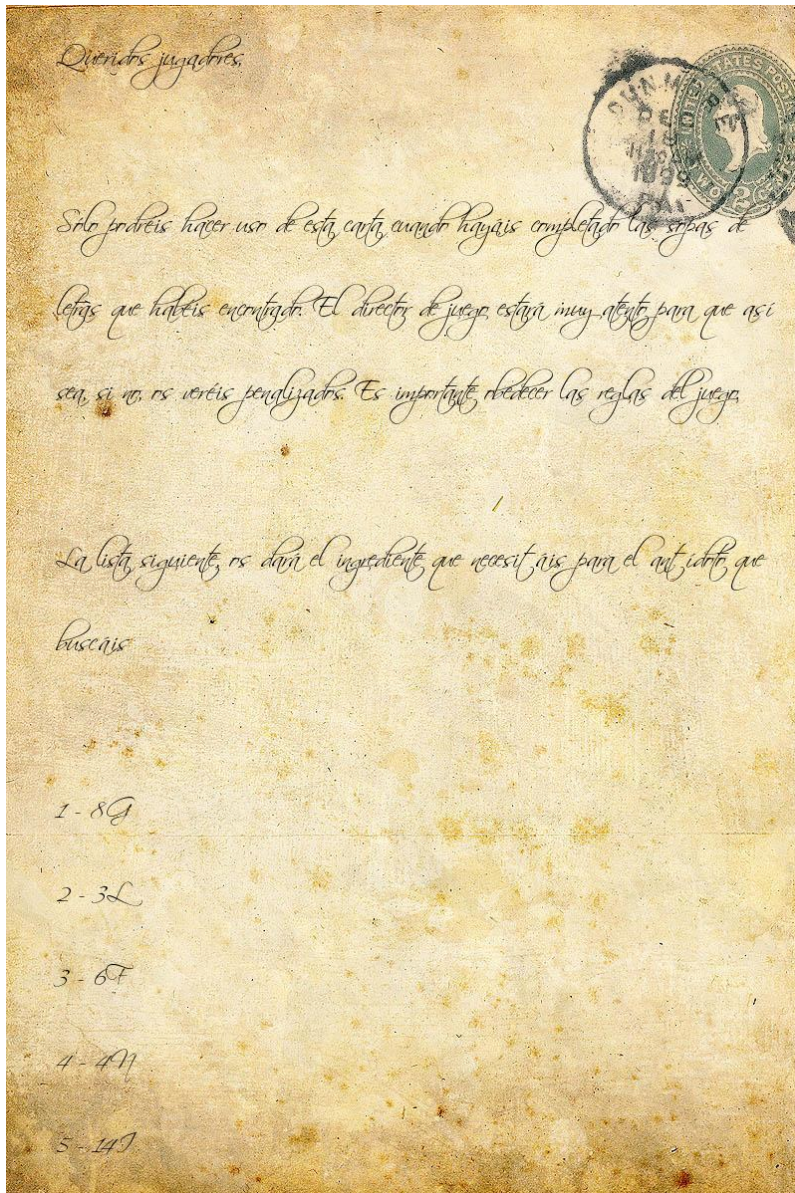 Queridos jugadores,
Sólo podréis hacer uso de esta carta cuando hayáis completado las sopas de
letras que habéis encontrado. El director de juego estará muy atento para que así
sea, si no, os veréis penalizados. Es importante obedecer las reglas del juego.
La lista siguiente os dará el ingrediente que necesitáis para el antídoto que
buscáis
1 - 8G
2 - 3L
3 - 6F
4 - 4N
5 - 14I